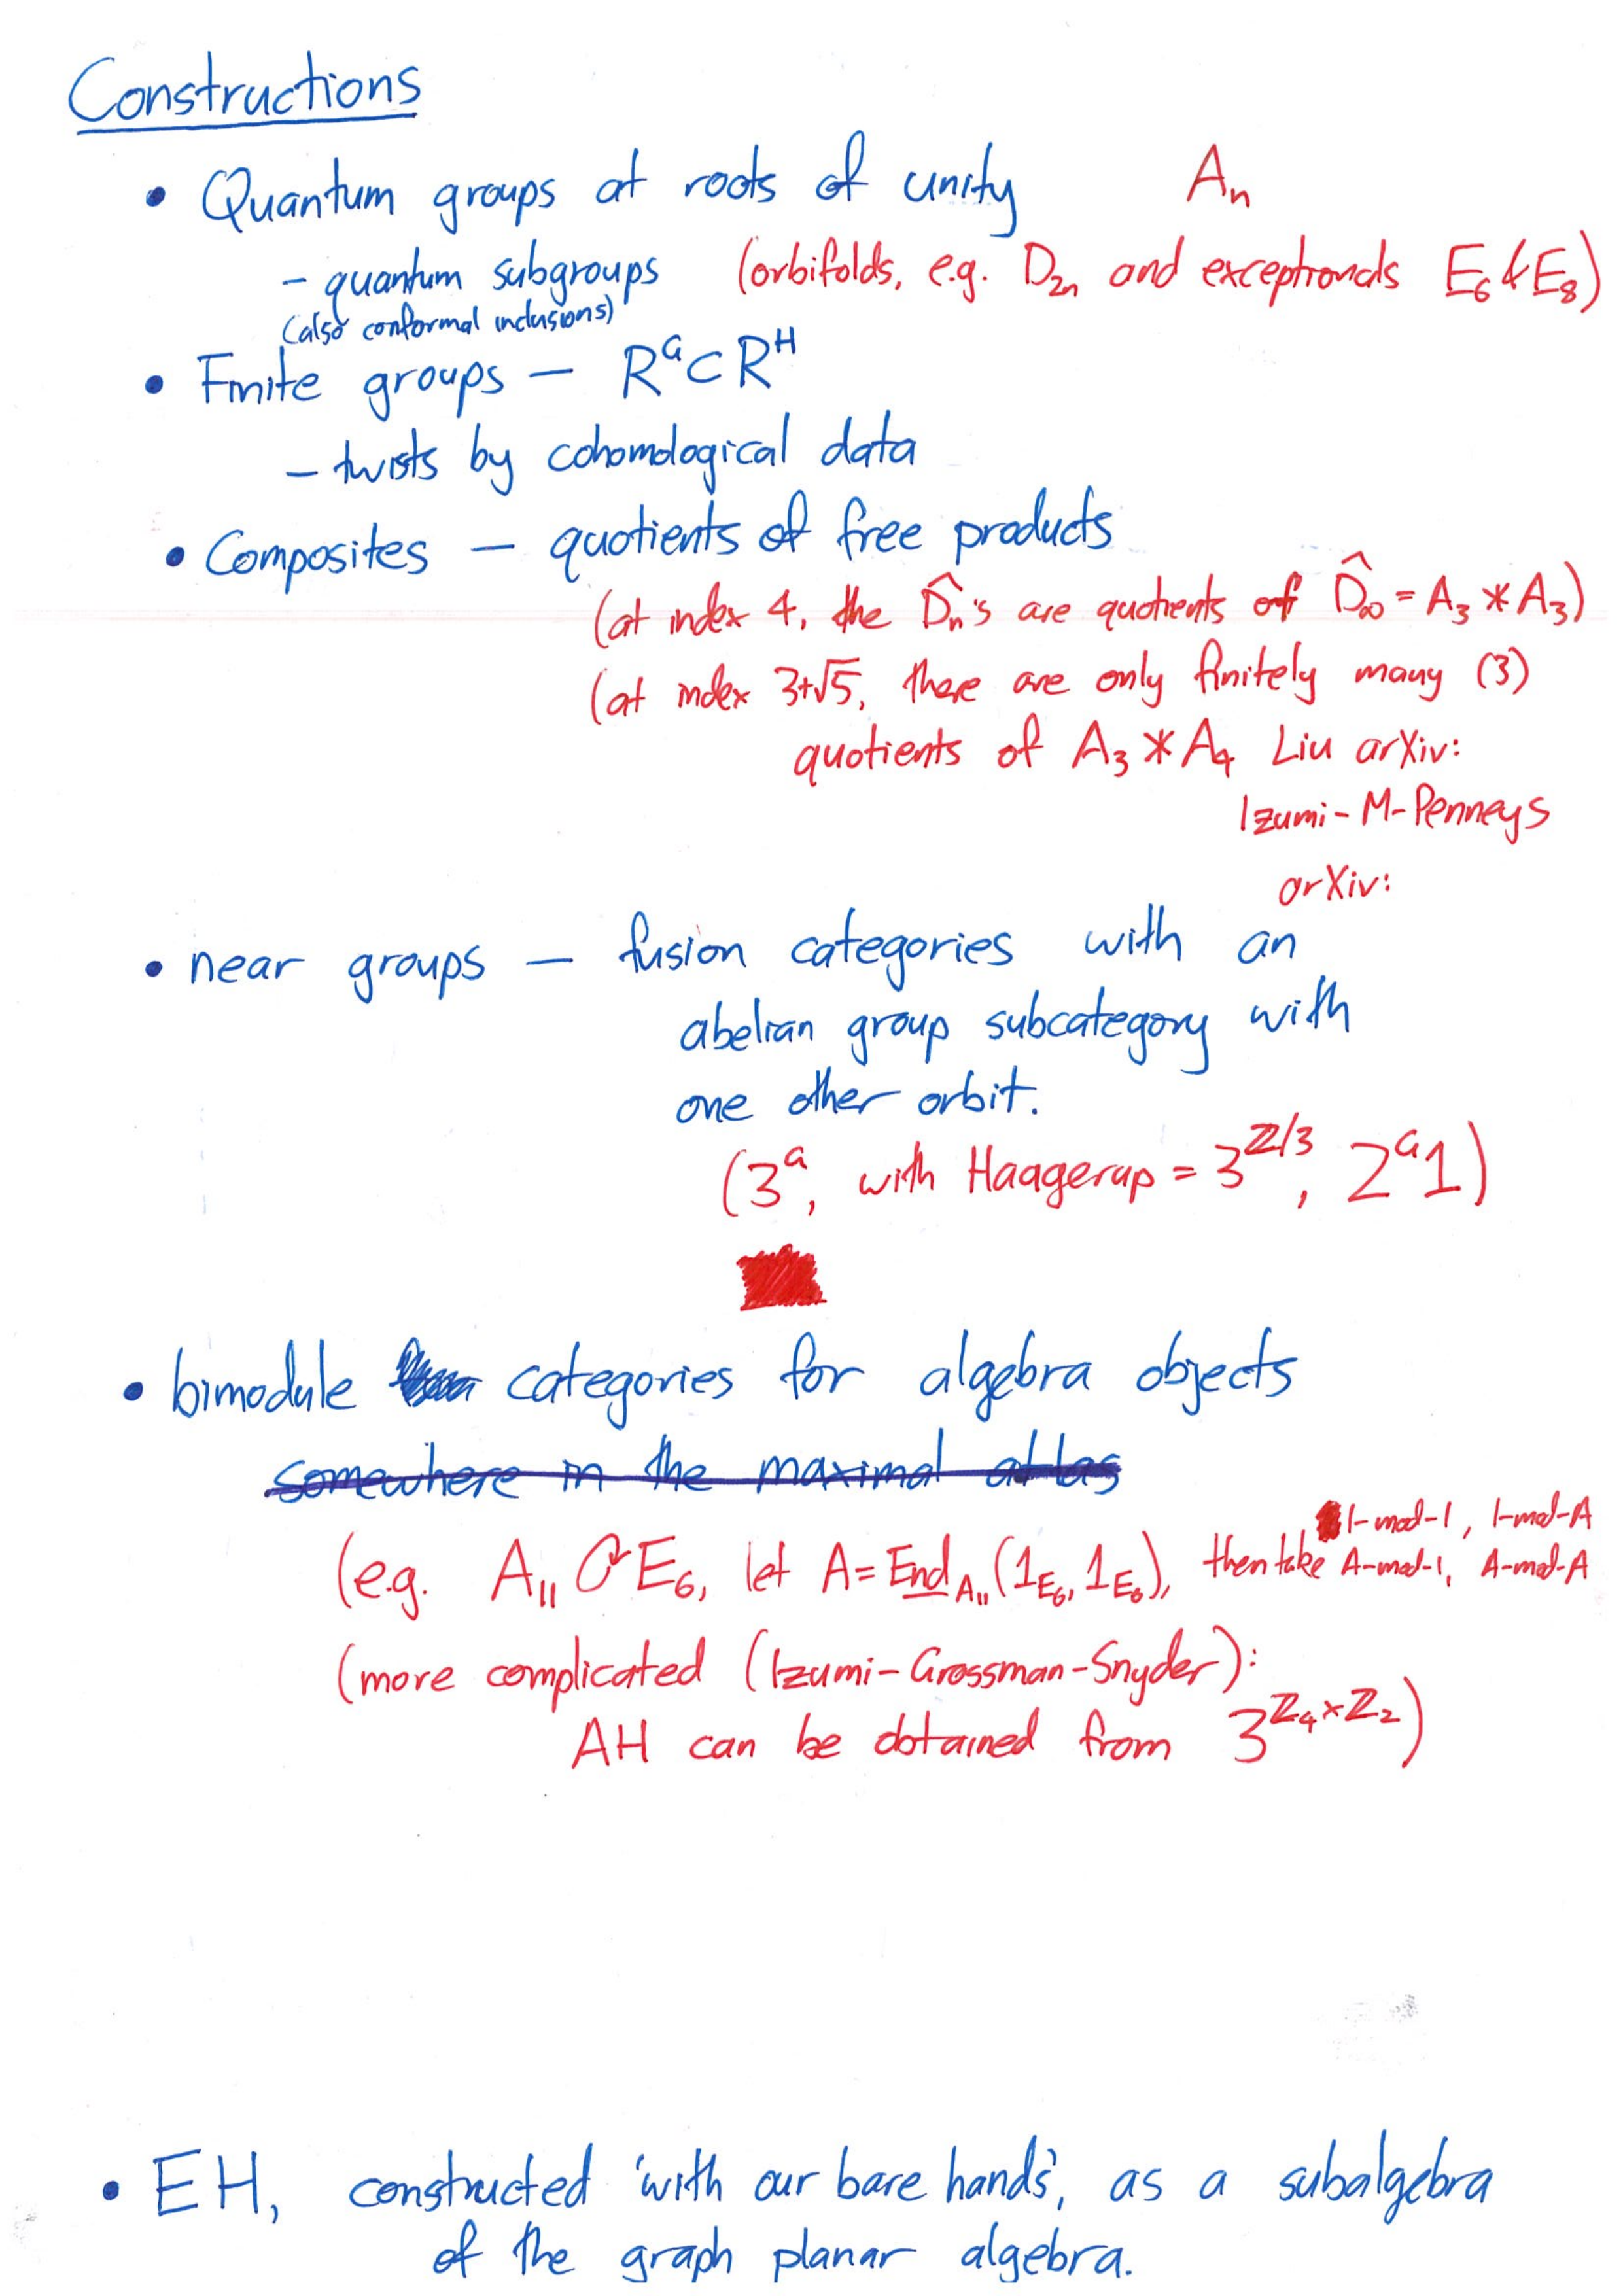 Constructions
• Quantum groups at roots of unity A_n
– quantum subgroups (orbifolds, e.g. D_{2n} and exceptionals E_6 & E_8)
(also conformal inclusions)
• Finite groups — R^G ⊂ R^H
– twists by cohomological data
• Composites — quotients of free products
(at index 4, the D̂_n's are quotients of D̂_∞ = A_3 * A_3)
(at index 3+√5, there are only finitely many (3)
quotients of A_3 * A_4 Liu arXiv:
Izumi-M-Penneys
arXiv:
• near groups — fusion categories with an
abelian group subcategory with
one other orbit.
(3^G, with Haagerup = 3^{Z/3}, 2^G1)
• bimodule categories for algebra objects
somewhere in the maximal atlas
(e.g. A_{11} ↻ E_6, let A = End_{A_{11}}(1_{E_6}, 1_{E_6}), then take 1-mod-1, 1-mod-A
A-mod-1, A-mod-A
(more complicated (Izumi-Grossman-Snyder):
AH can be obtained from 3^{Z_4×Z_2})
• EH, constructed 'with our bare hands', as a subalgebra
of the graph planar algebra.